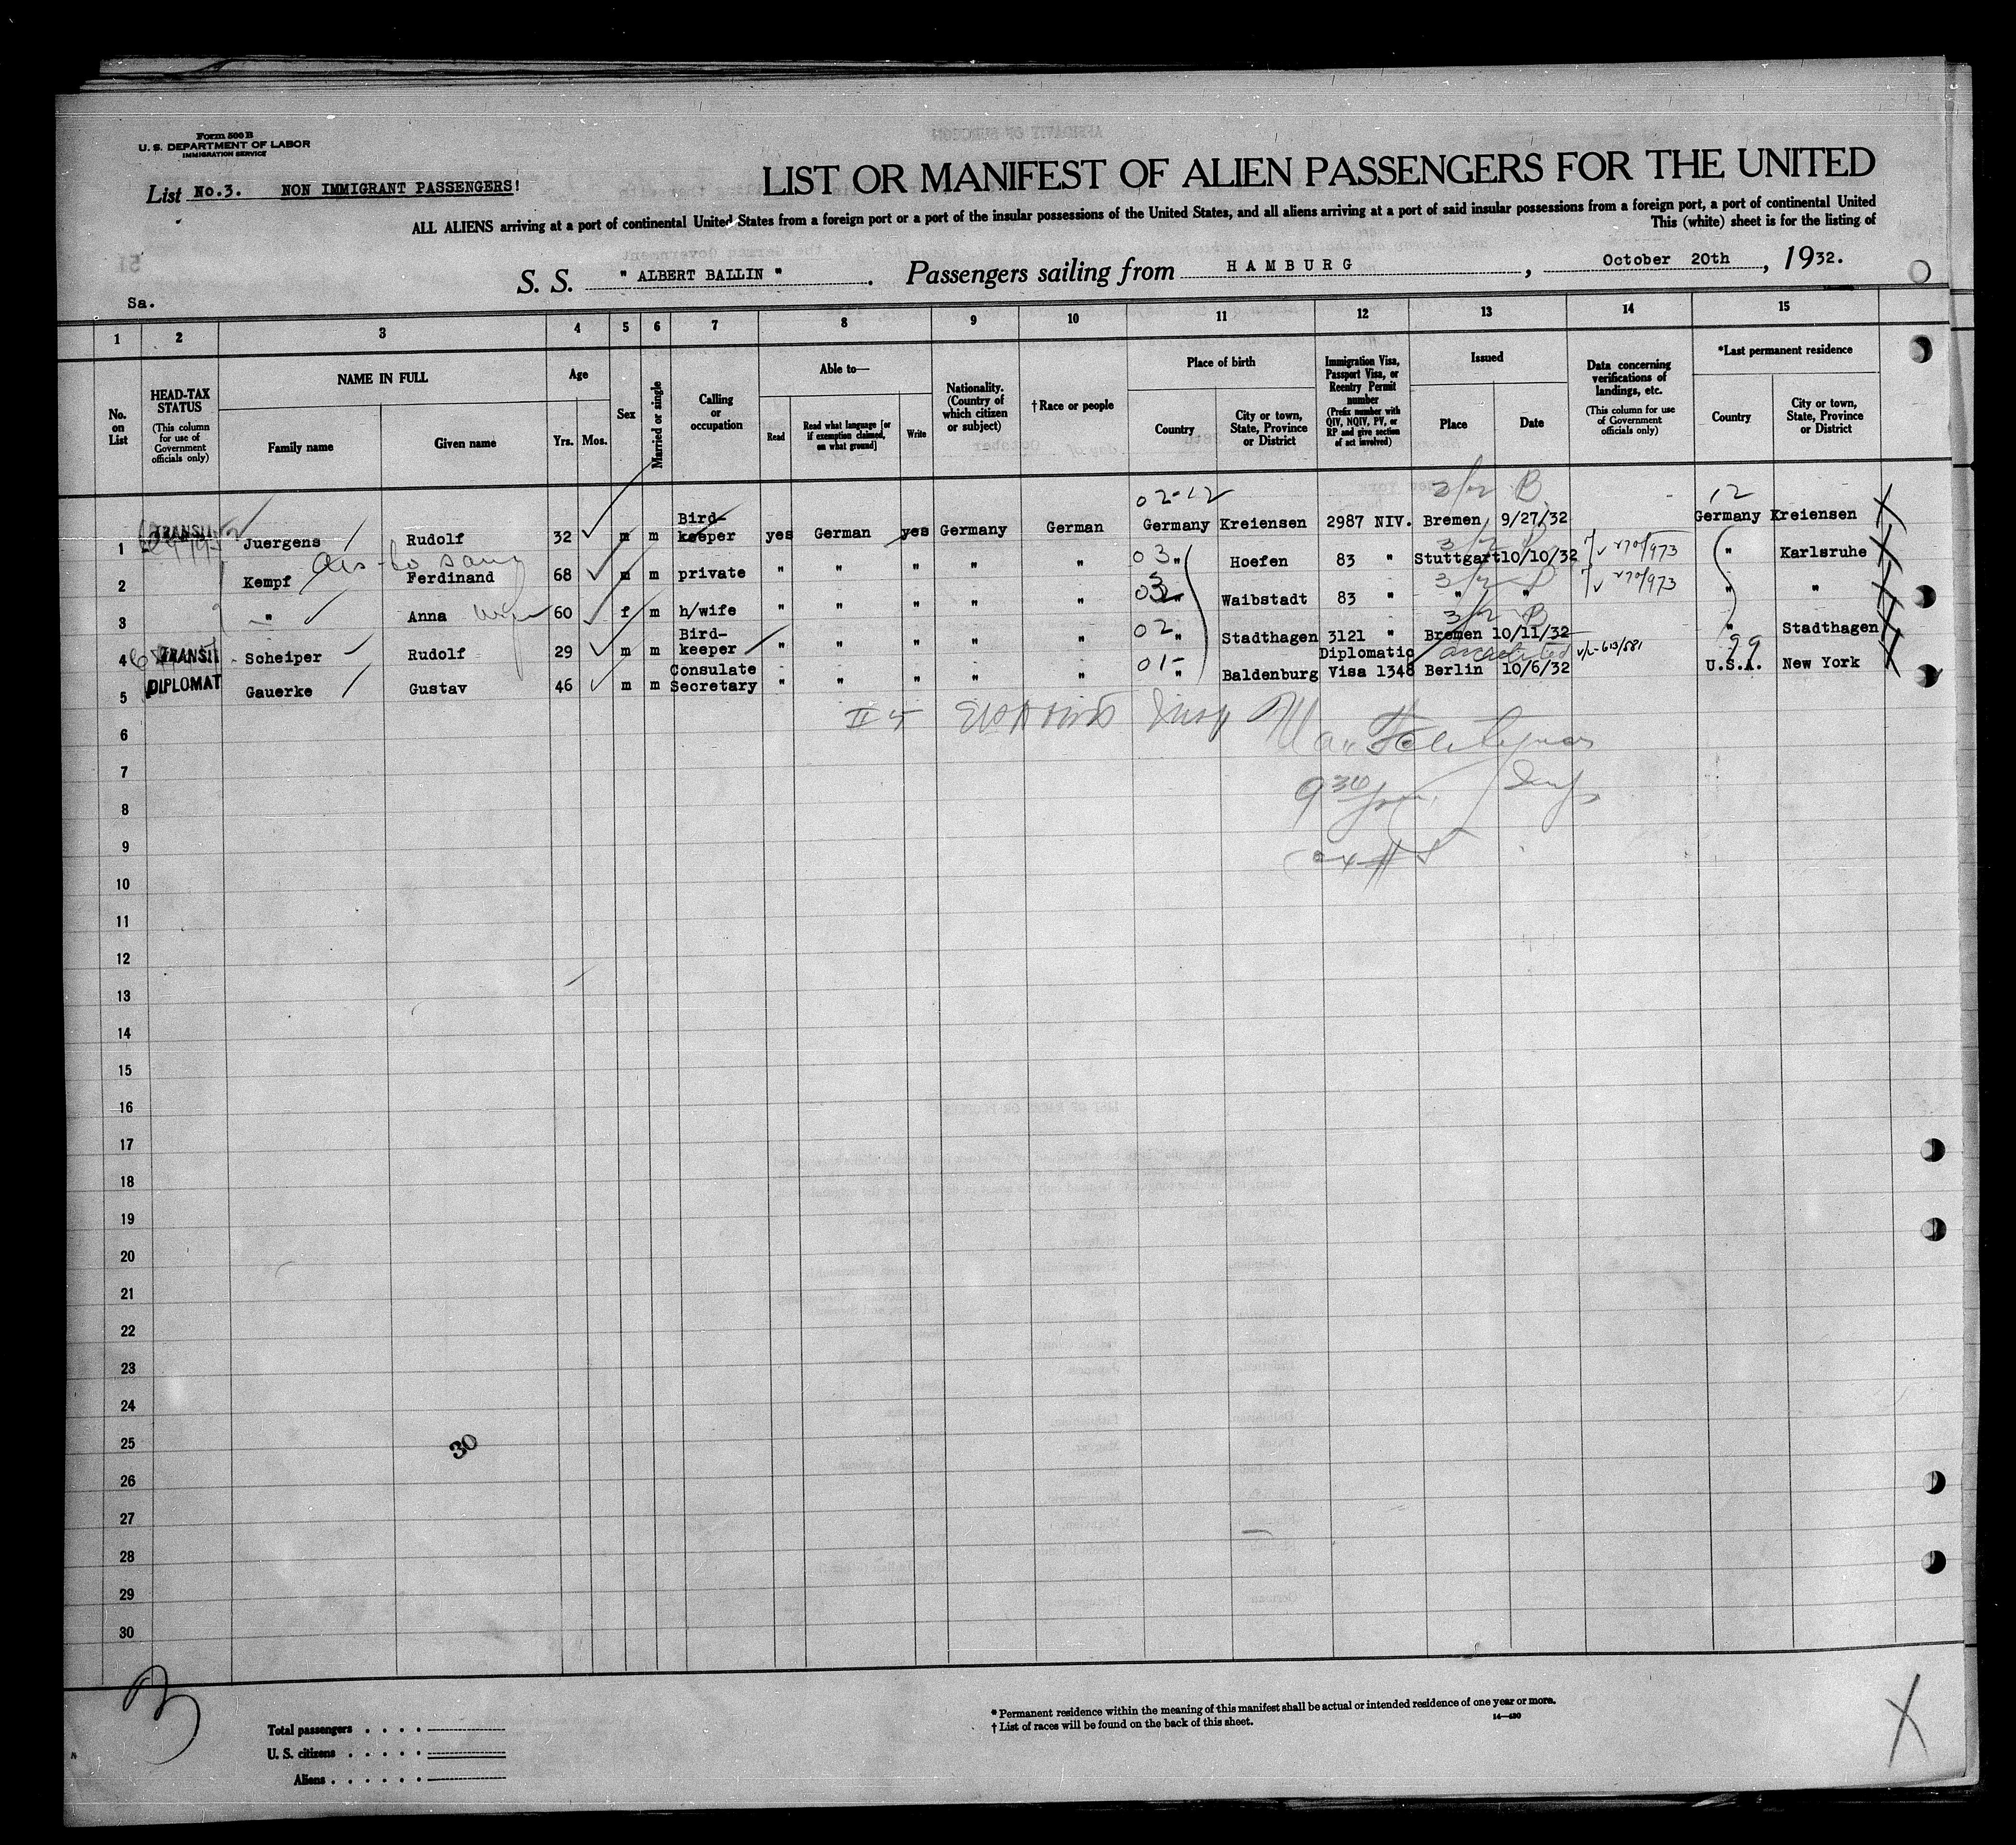 Form 500 B
U. S. DEPARTMENT OF LABOR
IMMIGRATION SERVICE
List No.3. NON IMMIGRANT PASSENGERS!
LIST OR MANIFEST OF ALIEN PASSENGERS FOR THE UNITED
ALL ALIENS arriving at a port of continental United States from a foreign port or a port of the insular possessions of the United States, and all aliens arriving at a port of said insular possessions from a foreign port, a port of continental United
This (white) sheet is for the listing of
S. S. " ALBERT BALLIN ". Passengers sailing from HAMBURG, October 20th, 1932.
Sa.
1 2 3 4 5 6 7 8 9 10 11 12 13 14 15
No. on List
HEAD-TAX STATUS (This column for use of Government officials only)
NAME IN FULL
Family name
Given name
Age
Yrs. Mos.
Sex
Married or single
Calling or occupation
Able to—
Read
Read what language [or if exemption claimed, on what ground]
Write
Nationality. (Country of which citizen or subject)
†Race or people
Place of birth
Country
City or town, State, Province or District
Immigration Visa, Passport Visa, or Reentry Permit number (Prefix number with QIV, NQIV, PV, or RP and give section of act involved)
Issued
Place
Date
Data concerning verifications of landings, etc. (This column for use of Government officials only)
*Last permanent residence
Country
City or town, State, Province or District
02-12 3/2 B 12
1 TRANSIT Juergens Rudolf 32 m m Bird-keeper yes German yes Germany German Germany Kreiensen 2987 NIV. Bremen 9/27/32 Germany Kreiensen
2 Kempf Ferdinand 68 m m private " " " " " 03 " Hoefen 83 " Stuttgart 10/10/32 " Karlsruhe
3 " Anna wife 60 f m h/wife " " " " " " Waibstadt 83 " " " " "
3/2 B
4 TRANSIT Scheiper Rudolf 29 m m Bird-keeper " " " " " 02 " Stadthagen 3121 " Bremen 10/11/32 " Stadthagen
99
5 DIPLOMAT Gauerke Gustav 46 m m Consulate Secretary " " " " " 01- " Baldenburg Diplomatic Visa 1348 Berlin 10/6/32 U.S.A. New York
6
7
8
9
10
11
12
13
14
15
16
17
18
19
20
21
22
23
24
25
26
27
28
29
30
30
3
Total passengers
U. S. citizens
Aliens
* Permanent residence within the meaning of this manifest shall be actual or intended residence of one year or more.
† List of races will be found on the back of this sheet.
14—430